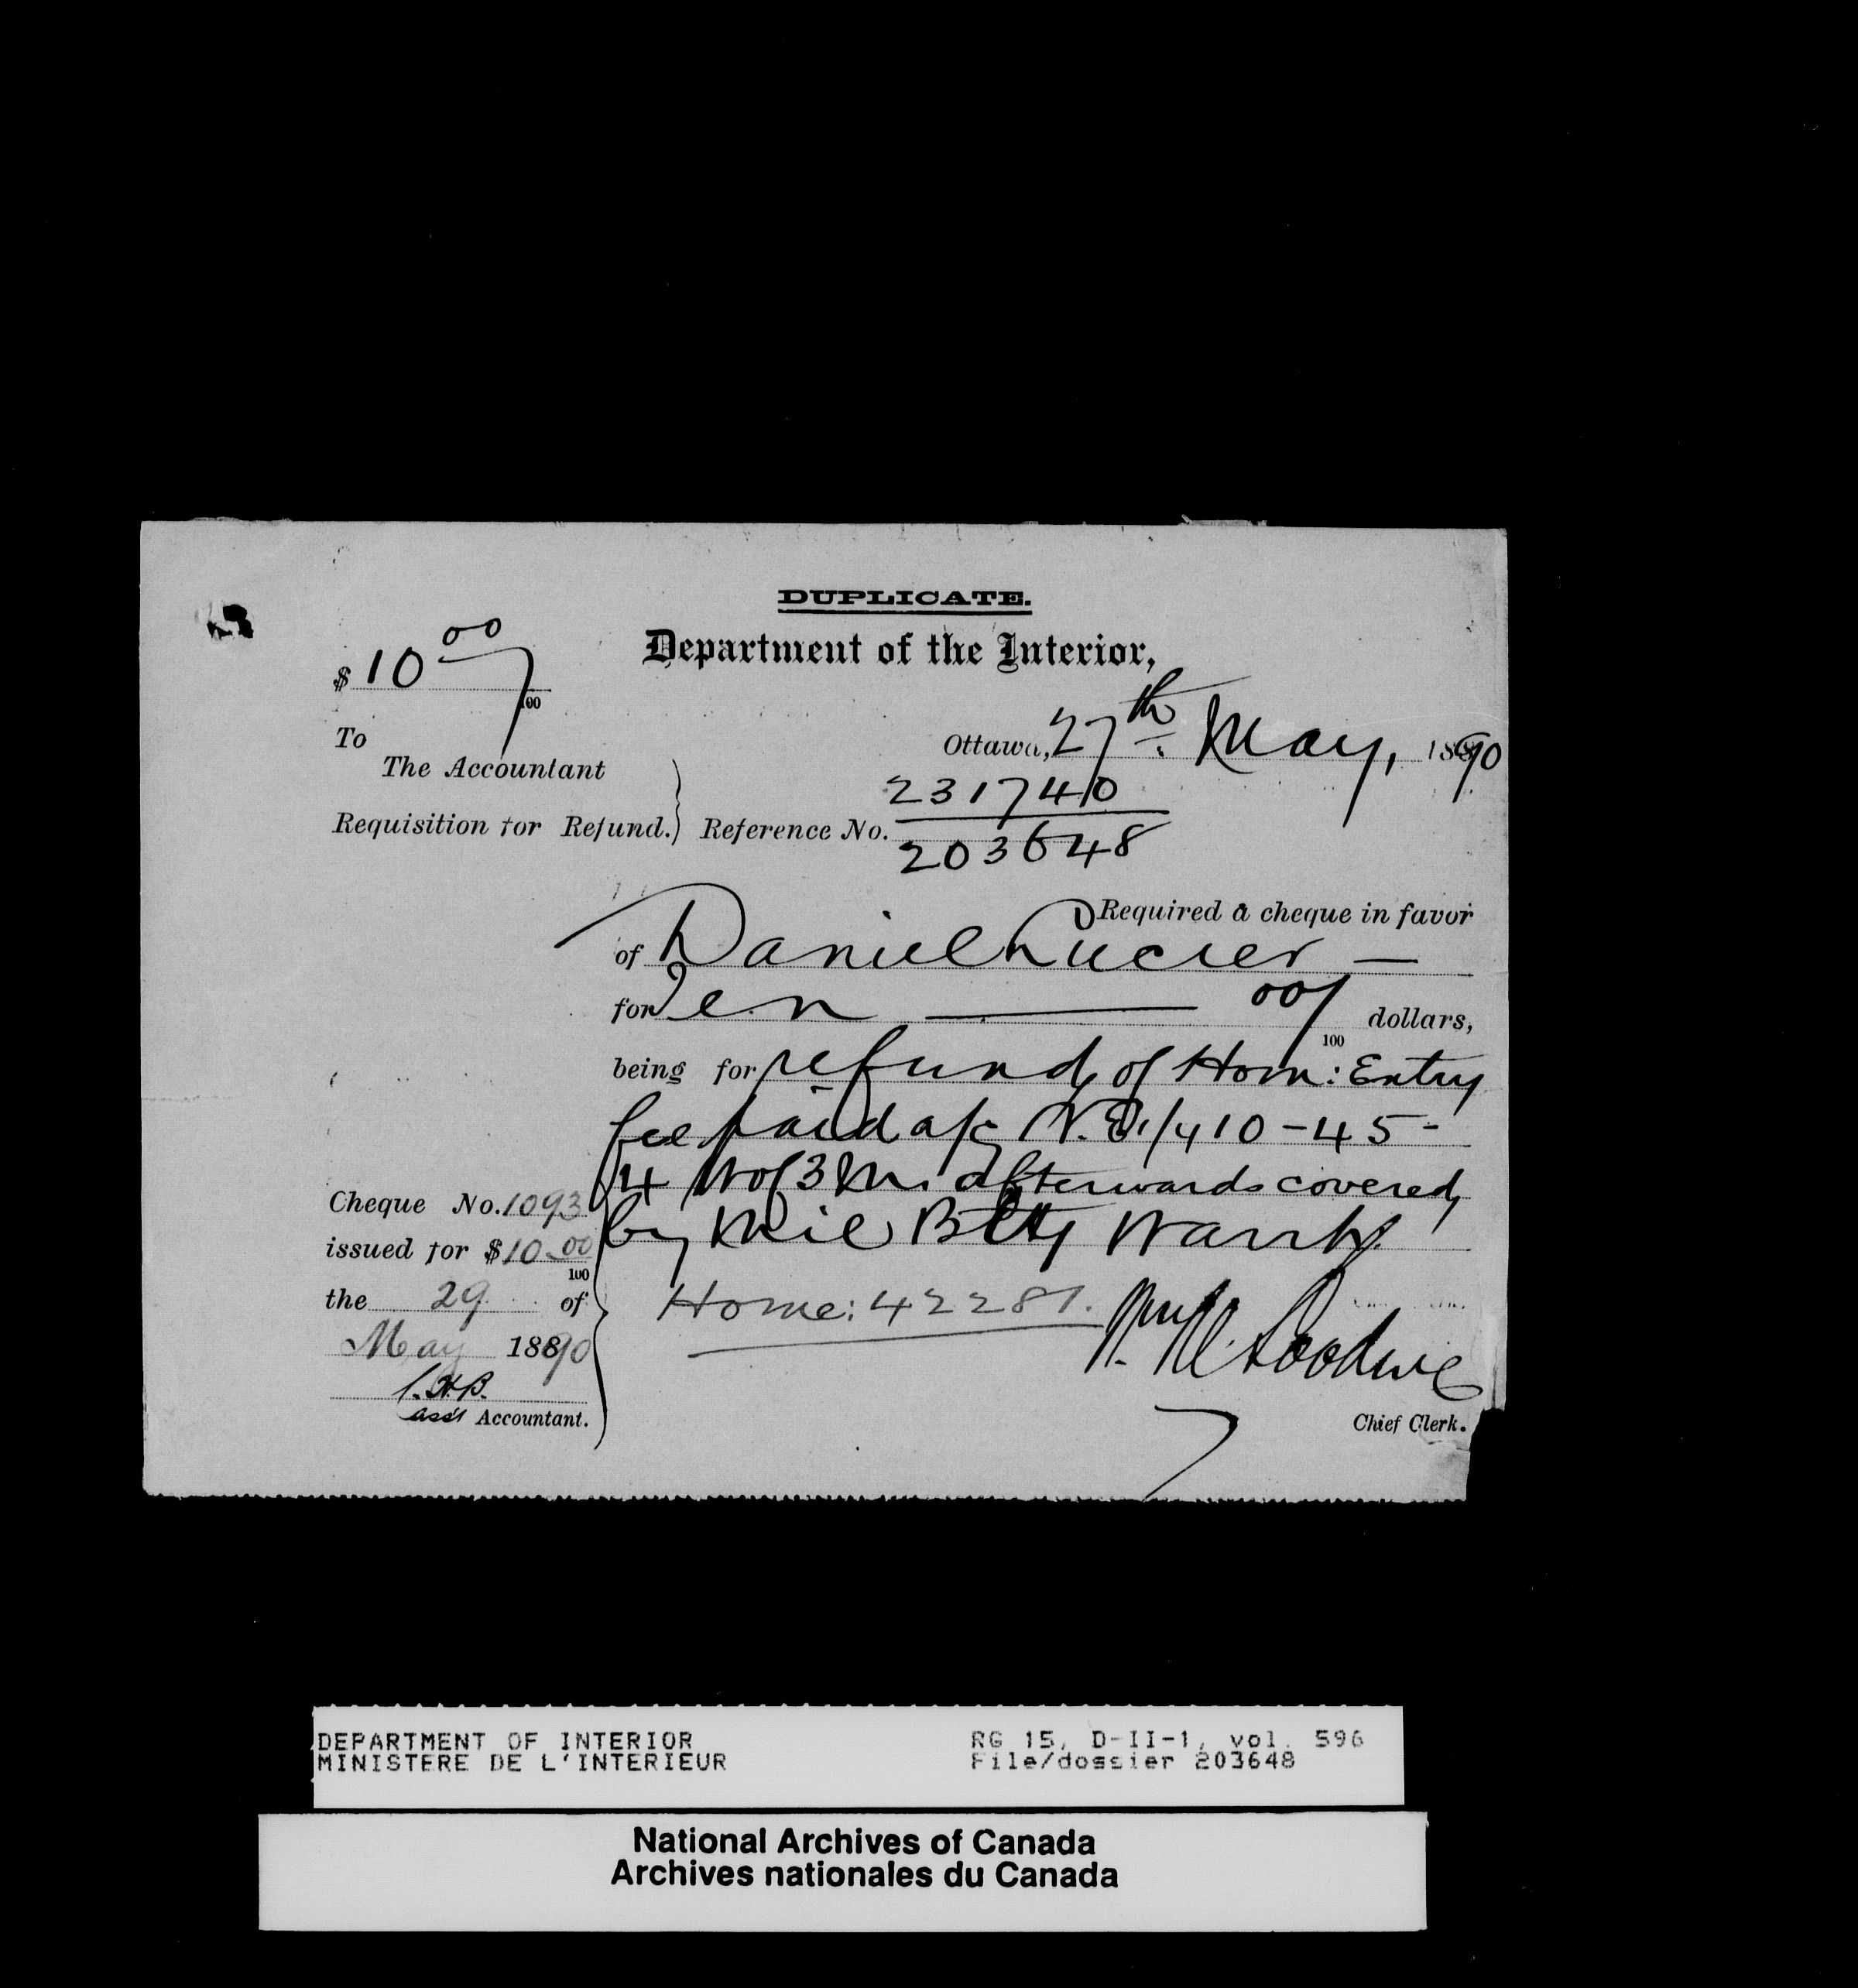 DUPLICATE.
Department of the Interior,
$ 10 00/100
Ottawa, 27th May, 1890
To
The Accountant
Requisition for Refund. } Reference No. 231740
203648
Required a cheque in favor
of Daniel Lucier —
for Ten — 00/100 dollars,
being for refund of Hom: Entry
fee paid a/c N.E. 1/4 10-45-
4 W of 3 M. afterwards covered
by Mil Bty Warrt.
Cheque No. 1093
issued for $10.00/100
the 29 of
May 1890
Asst Accountant.
Home: 42281.
Chief Clerk.
DEPARTMENT OF INTERIOR
MINISTERE DE L'INTERIEUR
RG 15, D-II-1, vol. 596
File/dossier 203648
National Archives of Canada
Archives nationales du Canada